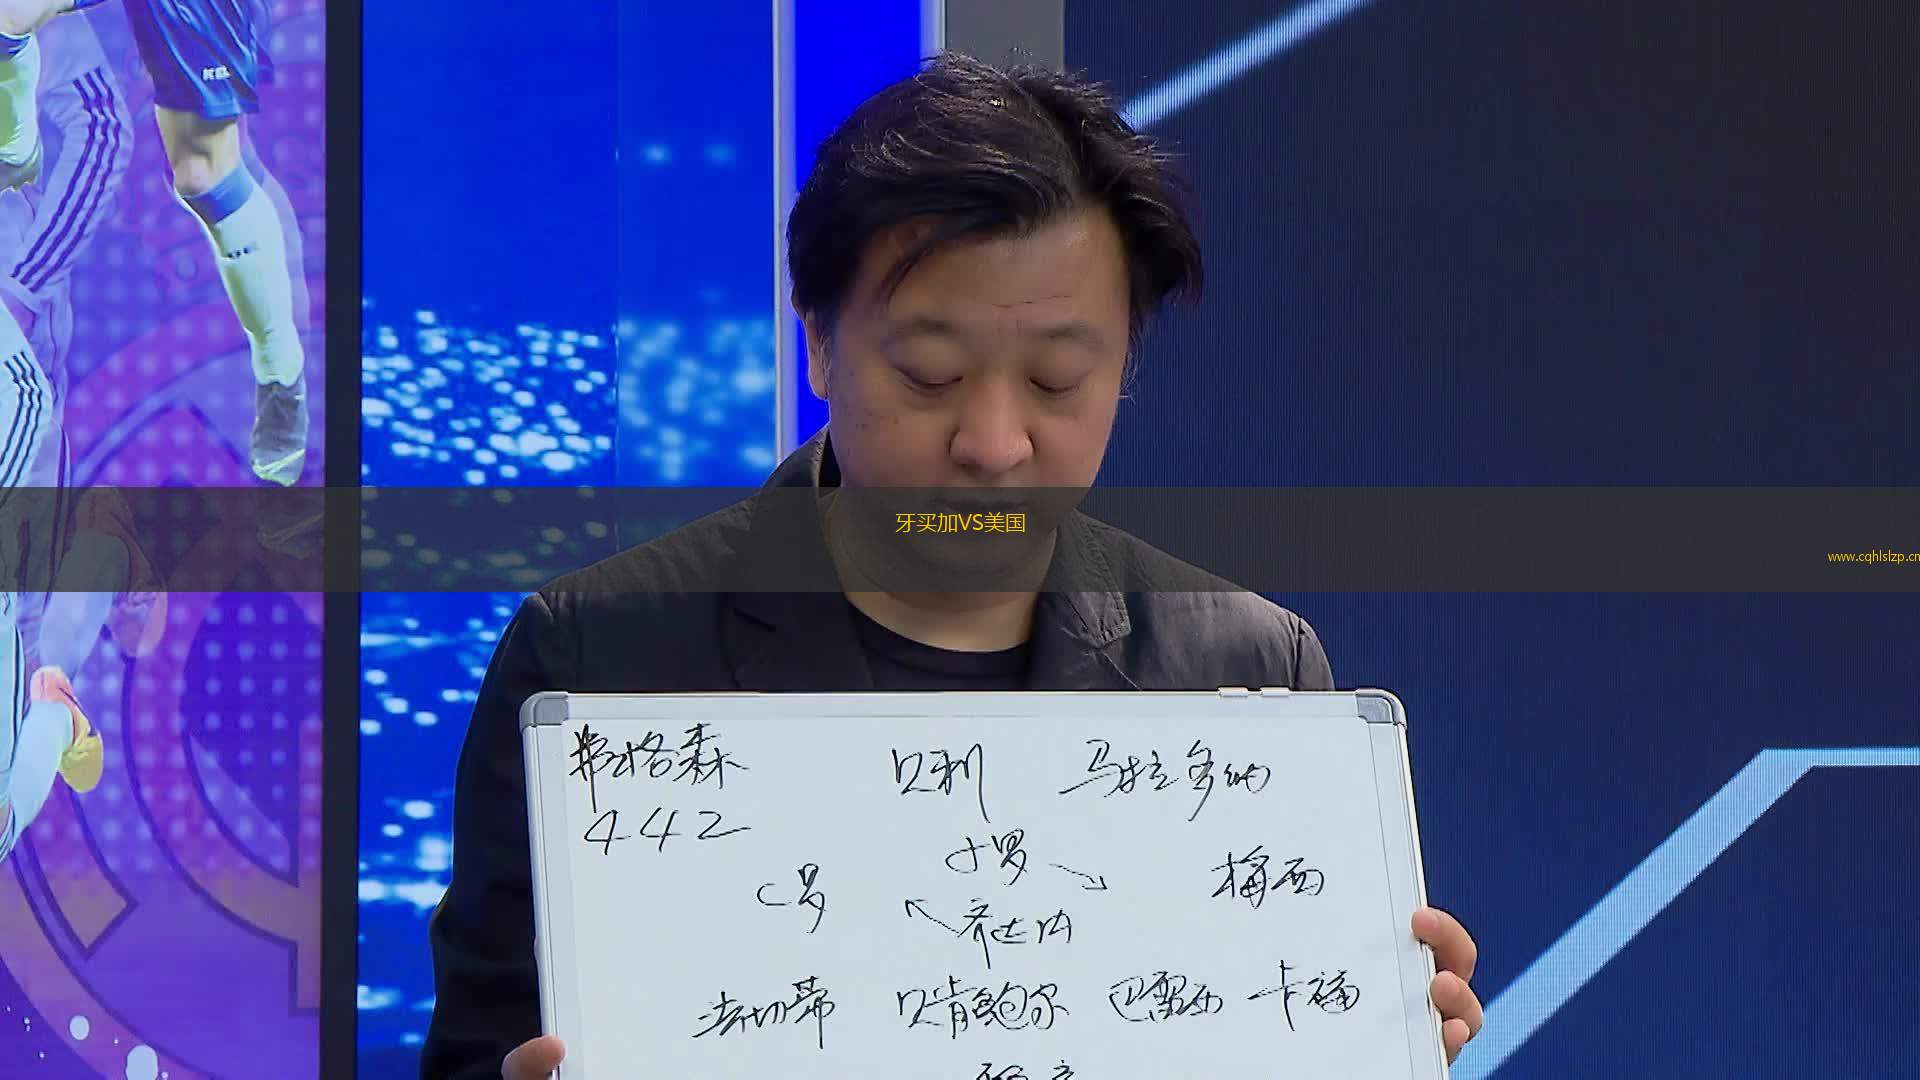 牙买加VS美国
www.cqhlslzp.cn
弗格森 贝利 马拉多纳
442
小罗
C罗 梅西
齐达内
法切蒂 贝肯鲍尔 巴雷西 卡福